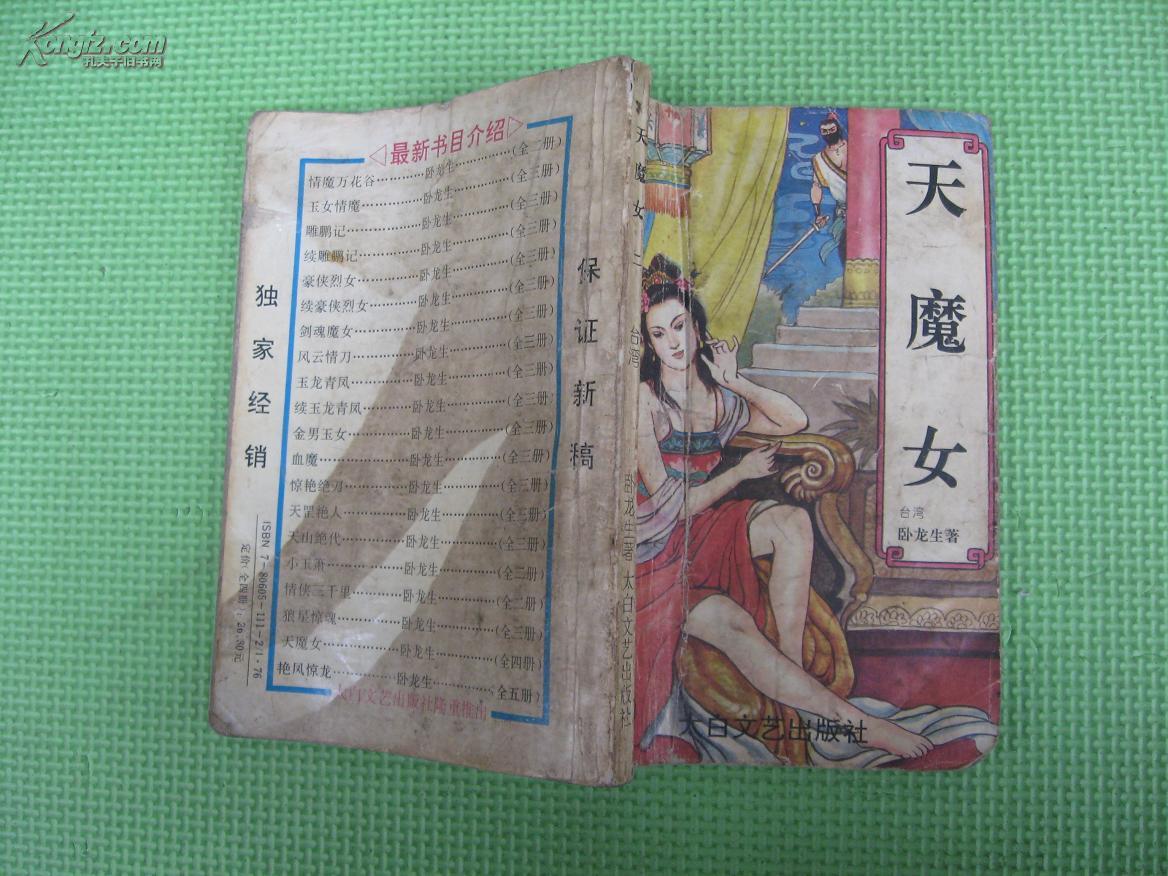 Kongfz.com
孔夫子旧书网
天魔女
台湾
卧龙生著
太白文艺出版社
天魔女 二 台湾 卧龙生著 太白文艺出版社
保证新稿
最新书目介绍
情魔万花谷…………卧龙生…………(全二册)
玉女情魔…………卧龙生…………(全三册)
雕鹏记…………卧龙生…………(全三册)
续雕鹏记…………卧龙生…………(全三册)
豪侠烈女…………卧龙生…………(全三册)
续豪侠烈女…………卧龙生…………(全三册)
剑魂魔女…………卧龙生…………(全三册)
风云情刀…………卧龙生…………(全三册)
玉龙青凤…………卧龙生…………(全三册)
续玉龙青凤…………卧龙生…………(全三册)
金男玉女…………卧龙生…………(全三册)
血魔…………卧龙生…………(全三册)
惊艳绝刃…………卧龙生…………(全三册)
天罡艳人…………卧龙生…………(全三册)
天山绝代…………卧龙生…………(全三册)
小玉萧…………卧龙生…………(全二册)
情侠三千里…………卧龙生…………(全二册)
狼星惊魂…………卧龙生…………(全三册)
天魔女…………卧龙生…………(全四册)
艳凤惊龙…………卧龙生…………(全五册)
太白文艺出版社隆重推出
独家经销
ISBN 7-80605-111-2/I·76
定价(全四册):26.80元